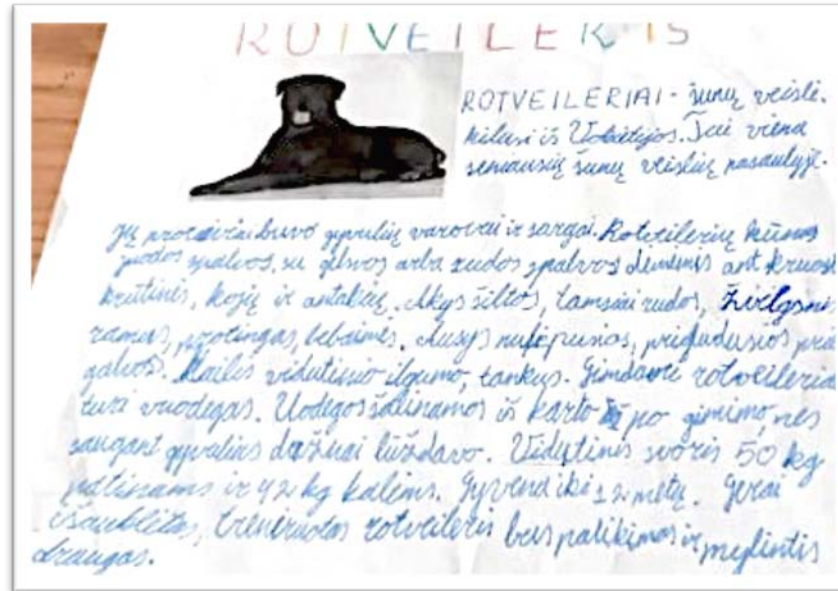 ROTVEILERIS
ROTVEILERIAI - šunų veislė.
kilusi iš Vokietijos. Tai viena
seniausių šunų veislių pasaulyje.
Jų protėviai buvo gyvulių varovai ir sargai. Rotveilerių kūnas
juodos spalvos, su gelsvos arba rudos spalvos dėmėmis ant
krutinės, kojų ir antakių. Akys šiltos, tamsiai rudos,
ramus, protingas, bebaimis. Ausys nulėpusios, prigludusios
galvos. Kailis vidutinio ilgumo, tankus. Gimdami
turi vuodegas. Uodegos šalinamos iš karto po gimimo, nes
saugant gyvulius dažnai lūždavo. Vidutinis svoris 50 kg
patinams ir 42 kg kalėms. Gyvena iki 12 metų. Gerai
išauklėtas, treniruotas rotveileris bus patikimas ir mylintis
draugas.